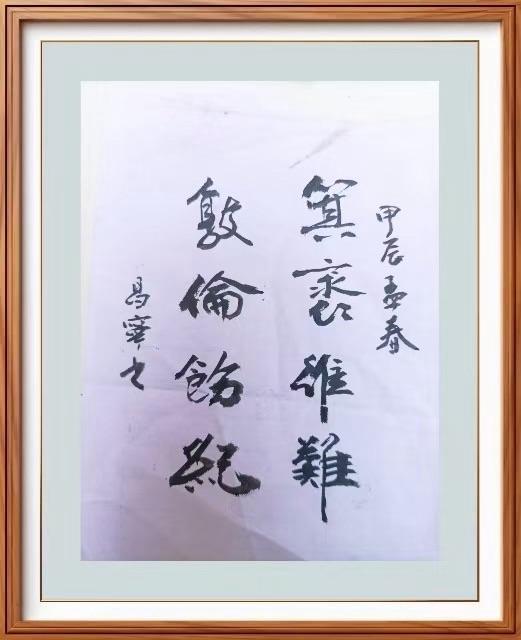 甲辰孟春
箕裘維難
敦倫飭紀
昌寧書